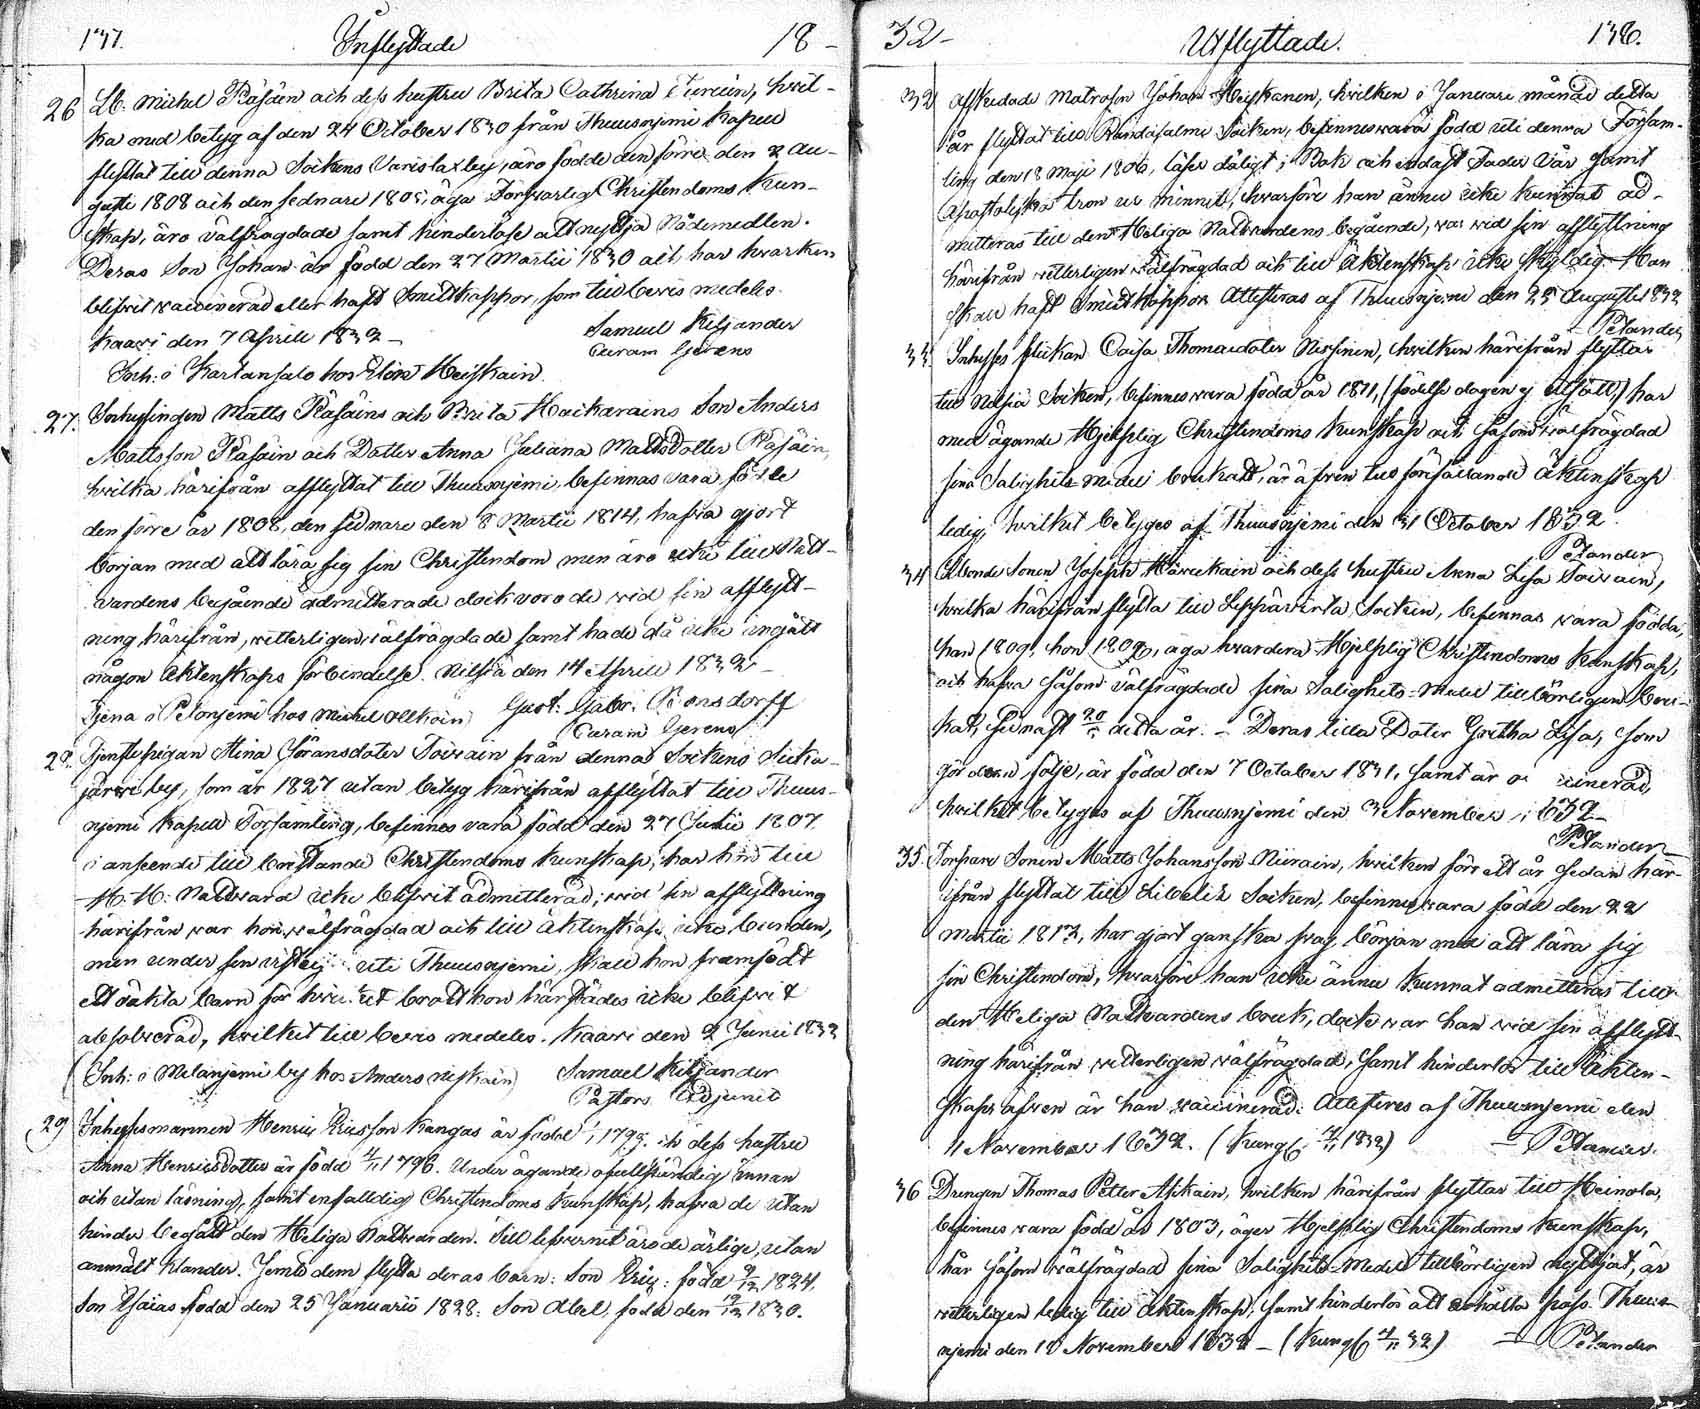 137. Inflyttade 18-
26 Lb. Michel Räsäin och dess hustru Brita Cathrina Turuin, hvil-
ka med betyg af den 24 October 1830 från Thuusnjemi Kapell
flyttat till denna Sockens Varislax by, äro födde den förre den 2 Au-
gusti 1808 och den sednare 1805, äga Försvarligt Christendoms Kun-
skap, äro välfrägdade samt hinderlöse att nyttja Nådemedlen.
Deras Son Johan är född den 27 Martii 1830 och har hvarken
blifvit vaccinerad eller haft Smittkoppor, som till bevis medeles.
Kaavi den 7 Aprill 1832 - Samuel Kiljander
Curam Gerens
Inh: i Kartansalo hos Heiskain.
27. Inhysingen Matts Räsäins och Brita Hackarains Son Anders
Mattsson Räsäin och Dotter Anna Juliana Mattsdotter Räsäin,
hvilka härifrån afflyttat till Thuusnjemi, befinnas vara födde
den förre år 1808, den sednare den 8 Martii 1814, hafva gjort
början med att lära sig sin Christendom men äro icke till Natt-
vardens begående admitterade dock voro de vid sin afflytt-
ning härifrån, vetterligen välfrägdade samt hade då icke ingått
någon Äktenskaps förbindelse. Nilsiä den 14 Aprill 1832 -
Tjena i Petonjemi hos Michel Ollikain Gust: Gabr: Bonsdorff
Curam Gerens
28. Tjenstepigan Stina Göransdoter Toivain från denna Sockens Sicka-
järvi by, som år 1827 utan betyg härifrån afflyttat till Thuus-
njemi Kapell Församling, befinnes vara född den 27 Julii 1807.
i anseende till bristande Christendoms kunskap, har hon till
H. H. Nattvard icke blifvit admitterad; vid sin afflyttning
härifrån var hon välfrägdad och till Äktenskap icke bunden,
men under sin uti Thuusnjemi, skall hon framfödt
ett oäkta barn för brott hon härstädes icke blifvit
absolverad, hvilket till bevis medeles. Kaavi den 2 Junii 1832
(Inh: i Melanjemi by hos Anders Niskain) Samuel Kiljander
Pastors Adjunct
29 Inhysesmannen Henric Ericsson Kangas är född 1799. och dess hustru
Anna Henricsdotter är född 1796. Under ägande ofullständig innan
och utan läsning, samt enfalldig Christendoms Kunskap, hafva de utan
hinder begått den Heliga Nattvarden. Till lefvernet äro de ärlige, utan
anmält klander. Jemte dem flytta deras barn: Son Eric: född 1824,
Son Esaias född den 25 Januarii 1828: Son Abel, född den 1830.
32- Utflyttade. 138.
32 Afskedade Matrosen Johan Heiskanen, hvilken i Januari månad detta
år flyttat till Randasalmi Socken, befinnes vara född uti denna Försam-
ling den 18 Maji 1806, läser dåligt i Bok och endast Fader Vår samt
Apostoliska tron ur minnet, hvarföre han ännu icke kunnat ad-
mitteras till den Heliga Nattvardens begående, var vid sin afflyttning
härifrån vetterligen välfrägdad och till Äktenskap icke skyldig. Han
skall haft Smittkoppor. Attesteras af Thuusnjemi den 25 Augusti 1832
- Petander
33. Inhyses flickan Caisa Thomasdoter Nissinen, hvilken härifrån flyttar
till Nilsiä Socken, befinnes vara född år 1811, (födelse dagen ej ) har
med ägande Hjelplig Christendoms kunskap och såsom välfrägdad
sina Salighets-medel brukatt, är äfven till förefallande Äktenskap
ledig; hvilket betyges af Thuusnjemi den 31 October 1832.
Petander
34 Bonde Sonen Joseph Härckäin och dess hustru Anna Lisa Toivain,
hvilka härifrån flytta till Leppävirta Socken, befinnas vara födda,
han 1809, hon 1809, äga hvardera Hjelplig Christendoms Kunskap,
och hafva såsom välfrägdade sina Salighets-Medel tillbörligen bru-
kat, sednast detta år. - Deras lilla Doter Gretha Lisa, som
gör dem följe, är född den 7 October 1831, samt är
hvilket betyges af Thuusnjemi den 3 November 1832 -
Petander
35. Torpare Sonen Matts Johansson Niirain, hvilken för ett år sedan här-
ifrån flyttat till Libelitz Socken, befinnes vara född den 22
Martii 1813, har gjort ganska svag början med att lära sig
sin Christendom, hvarföre han icke ännu kunnat admitteras till
den Heliga Nattvardens bruk, dock var han vid sin afflytt-
ning härifrån vetterligen välfrägdad, samt hinderlös till Äkten-
skap äfven är han vaccinerad. Attesteras af Thuusnjemi den
4 November 1832. (Kung 1832) - Petander.
36 Drengen Thomas Petter Asikain, hvilken härifrån flyttar till Heinola,
befinnes vara född år 1803, äger Hjelplig Christendoms kunskap,
har såsom välfrägdad sina Salighets-Medel tillbörligen nyttjat, är
vetterligen ledig till Äktenskap, samt hinderlös att erhålla pass. Thuus-
njemi den 18 November 1832 - (Kung 32) - Petander